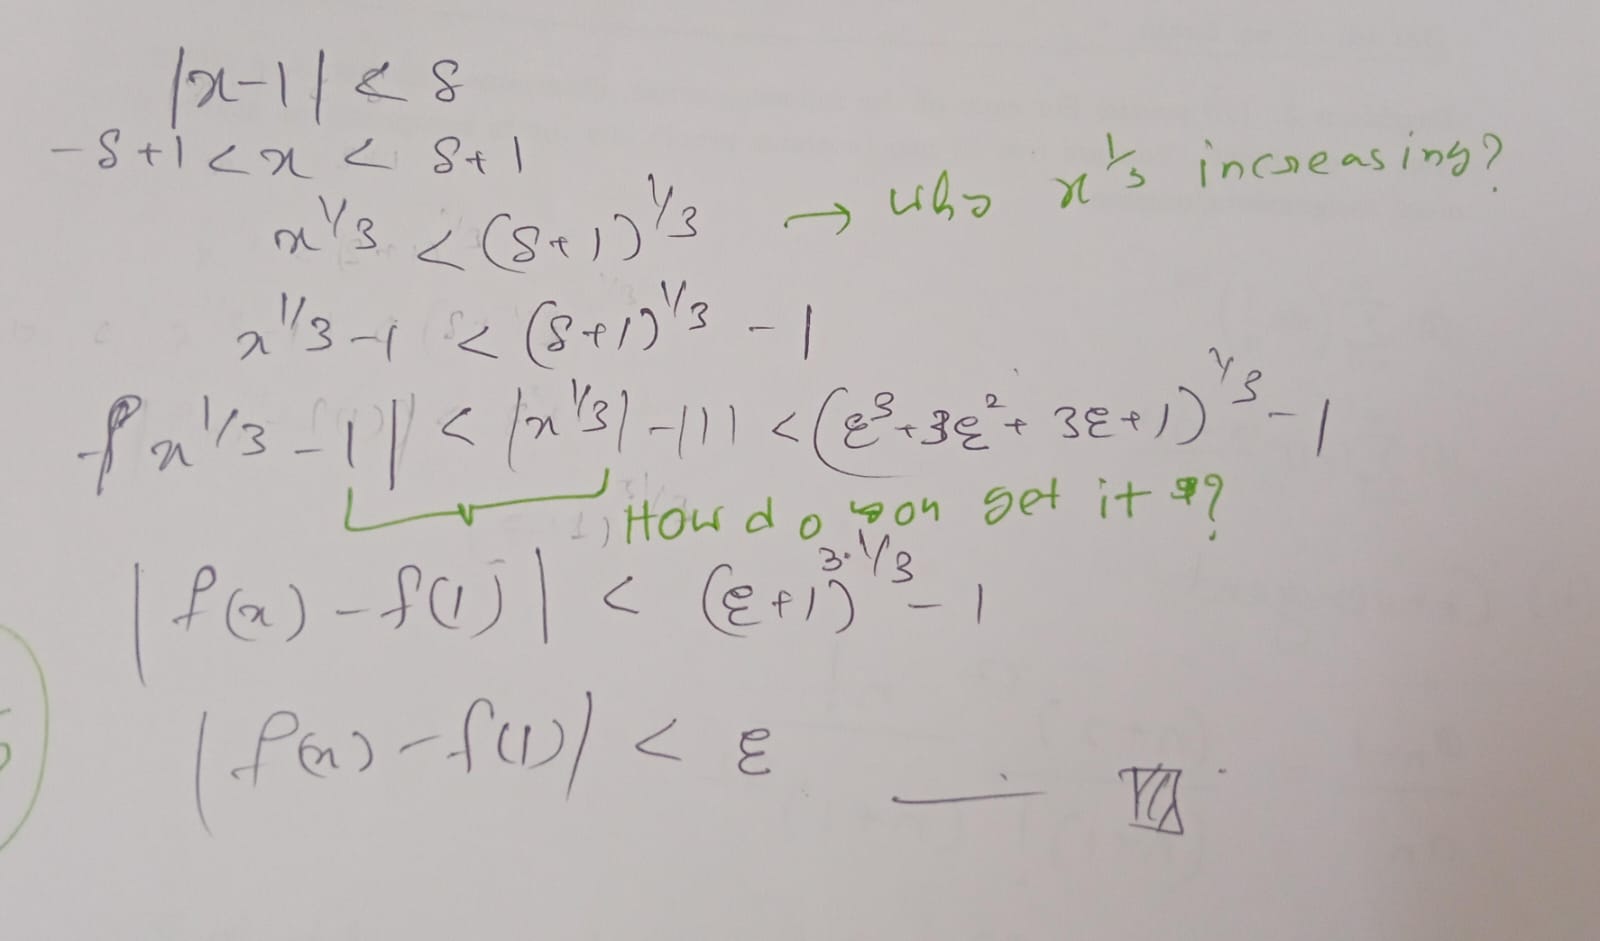 |x-1| < δ
-δ+1 < x < δ+1
x^1/3 < (δ+1)^1/3 → Why x^1/3 increasing?
x^1/3 - 1 < (δ+1)^1/3 - 1
|x^1/3 - 1| < |x^1/3| - |1| < (ε^3 + 3ε^2 + 3ε + 1)^1/3 - 1
How do you get it?
|f(x) - f(1)| < (ε+1)^3·1/3 - 1
|f(x) - f(1)| < ε